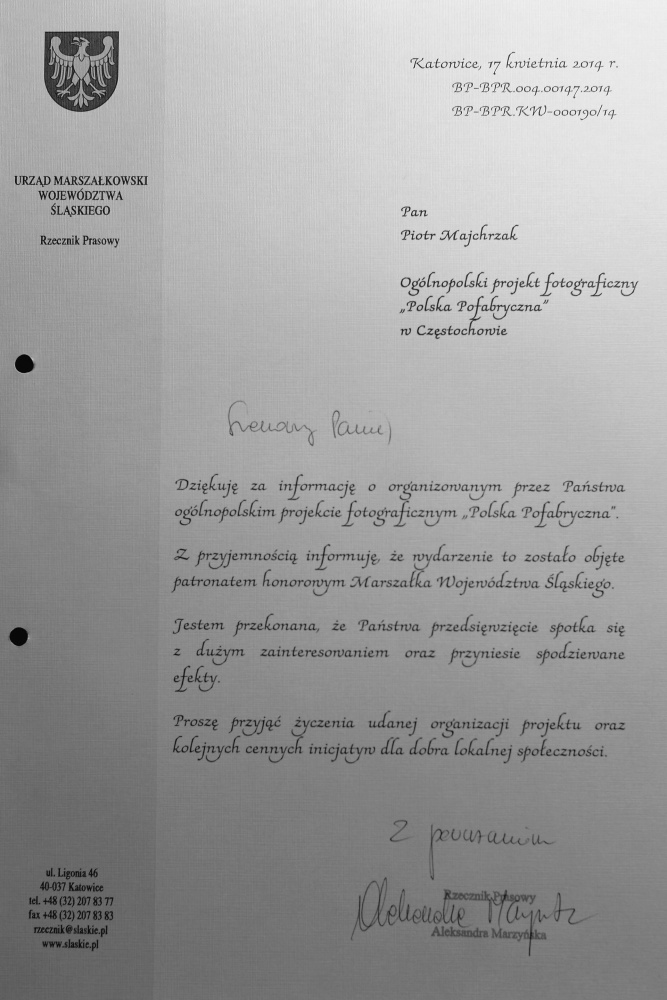 URZĄD MARSZAŁKOWSKI
WOJEWÓDZTWA
ŚLĄSKIEGO
Rzecznik Prasowy
Katowice, 17 kwietnia 2014 r.
BP-BPR.004.00147.2014
BP-BPR.KW-000190/14
Pan
Piotr Majchrzak
Ogólnopolski projekt fotograficzny
„Polska Pofabryczna”
w Częstochowie
Szanowny Panie,
Dziękuję za informację o organizowanym przez Państwa
ogólnopolskim projekcie fotograficznym „Polska Pofabryczna”.
Z przyjemnością informuję, że wydarzenie to zostało objęte
patronatem honorowym Marszałka Województwa Śląskiego.
Jestem przekonana, że Państwa przedsięwzięcie spotka się
z dużym zainteresowaniem oraz przyniesie spodziewane
efekty.
Proszę przyjąć życzenia udanej organizacji projektu oraz
kolejnych cennych inicjatyw dla dobra lokalnej społeczności.
Z poważaniem
Rzecznik Prasowy
Aleksandra Marzyńska
ul. Ligonia 46
40-037 Katowice
tel. +48 (32) 207 83 77
fax +48 (32) 207 83 83
rzecznik@slaskie.pl
www.slaskie.pl